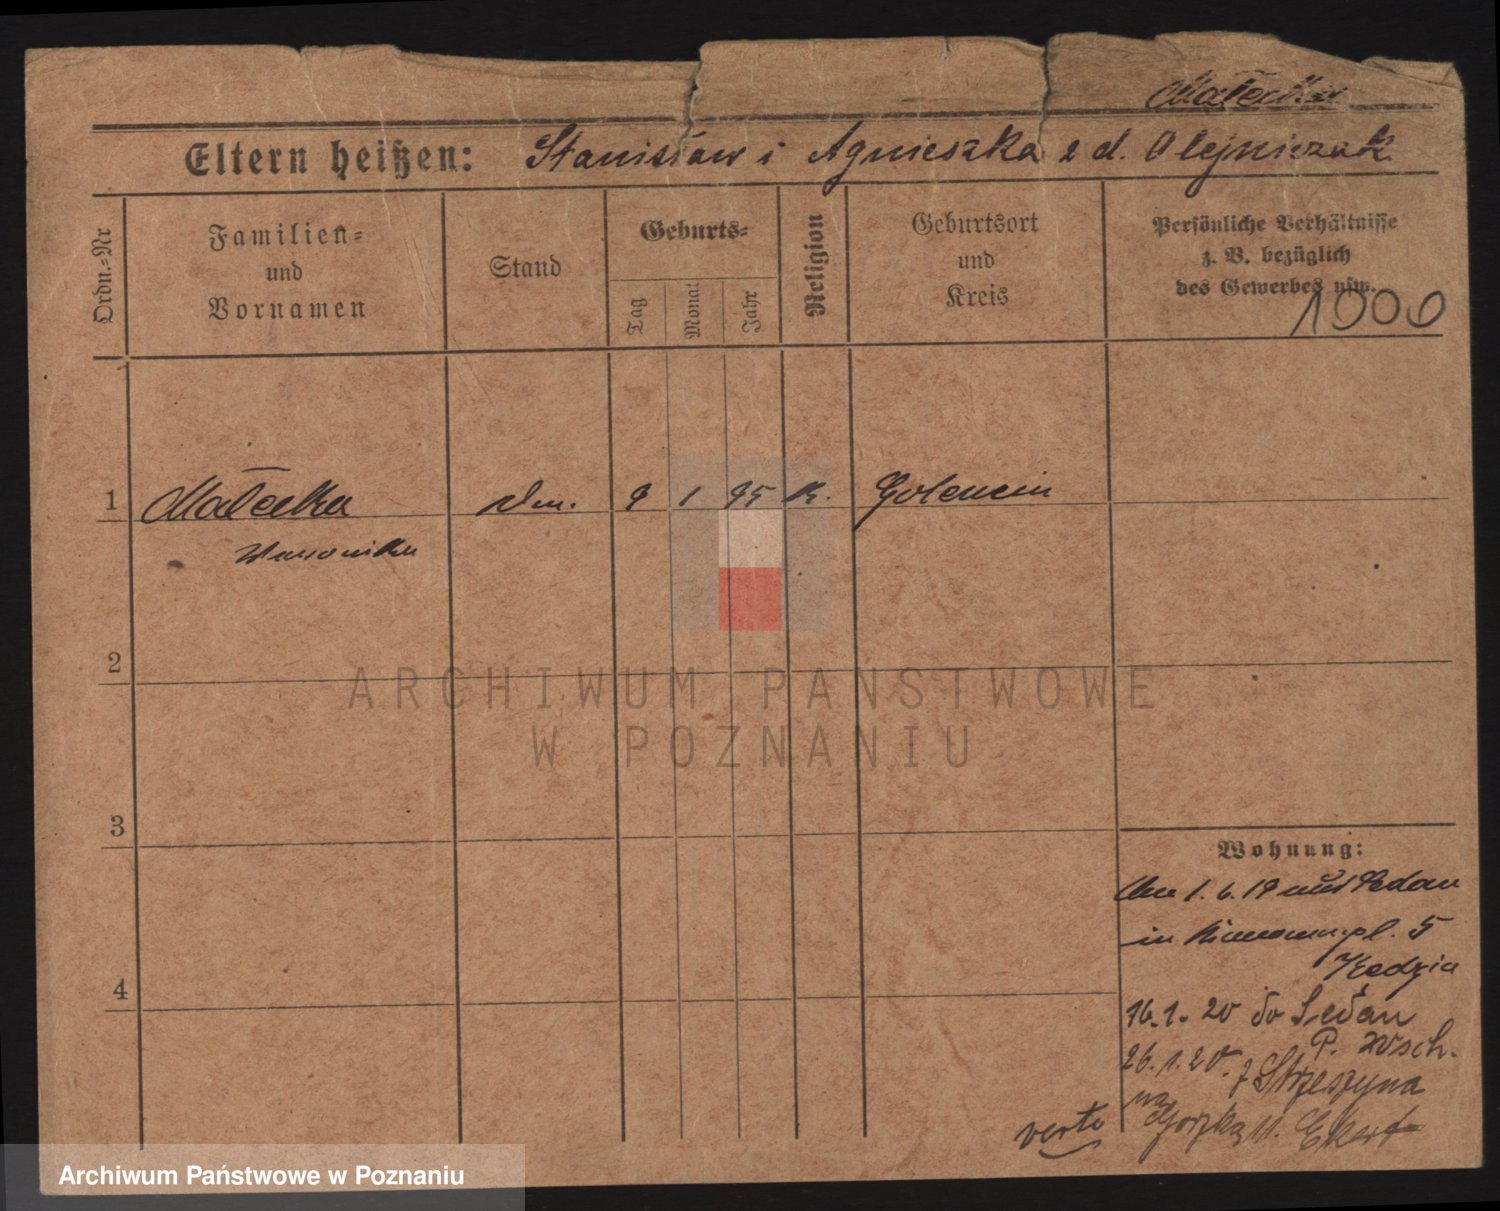 Małecka
Eltern heißen: Stanisław i Agnieszka z d. Olejniczak
Ordn.-Nr
Familien- und Vornamen
Stand
Geburts-
Tag
Monat
Jahr
Religion
Geburtsort und Kreis
Persönliche Verhältnisse
z. B. bezüglich
des Gewerbes usw.
1900
1 Małecka 9 1 95 K. Golencin
Weronika
2
ARCHIWUM PAŃSTWOWE
W POZNANIU
3
Wohnung:
1. 6. 19 Sedan
in 5
Kędzia
4
16.1. 20 do Sedan
P. Wsch.
26.1.20. z Strzeszyna
na
Gorzką 11. Ekert
verte
Archiwum Państwowe w Poznaniu